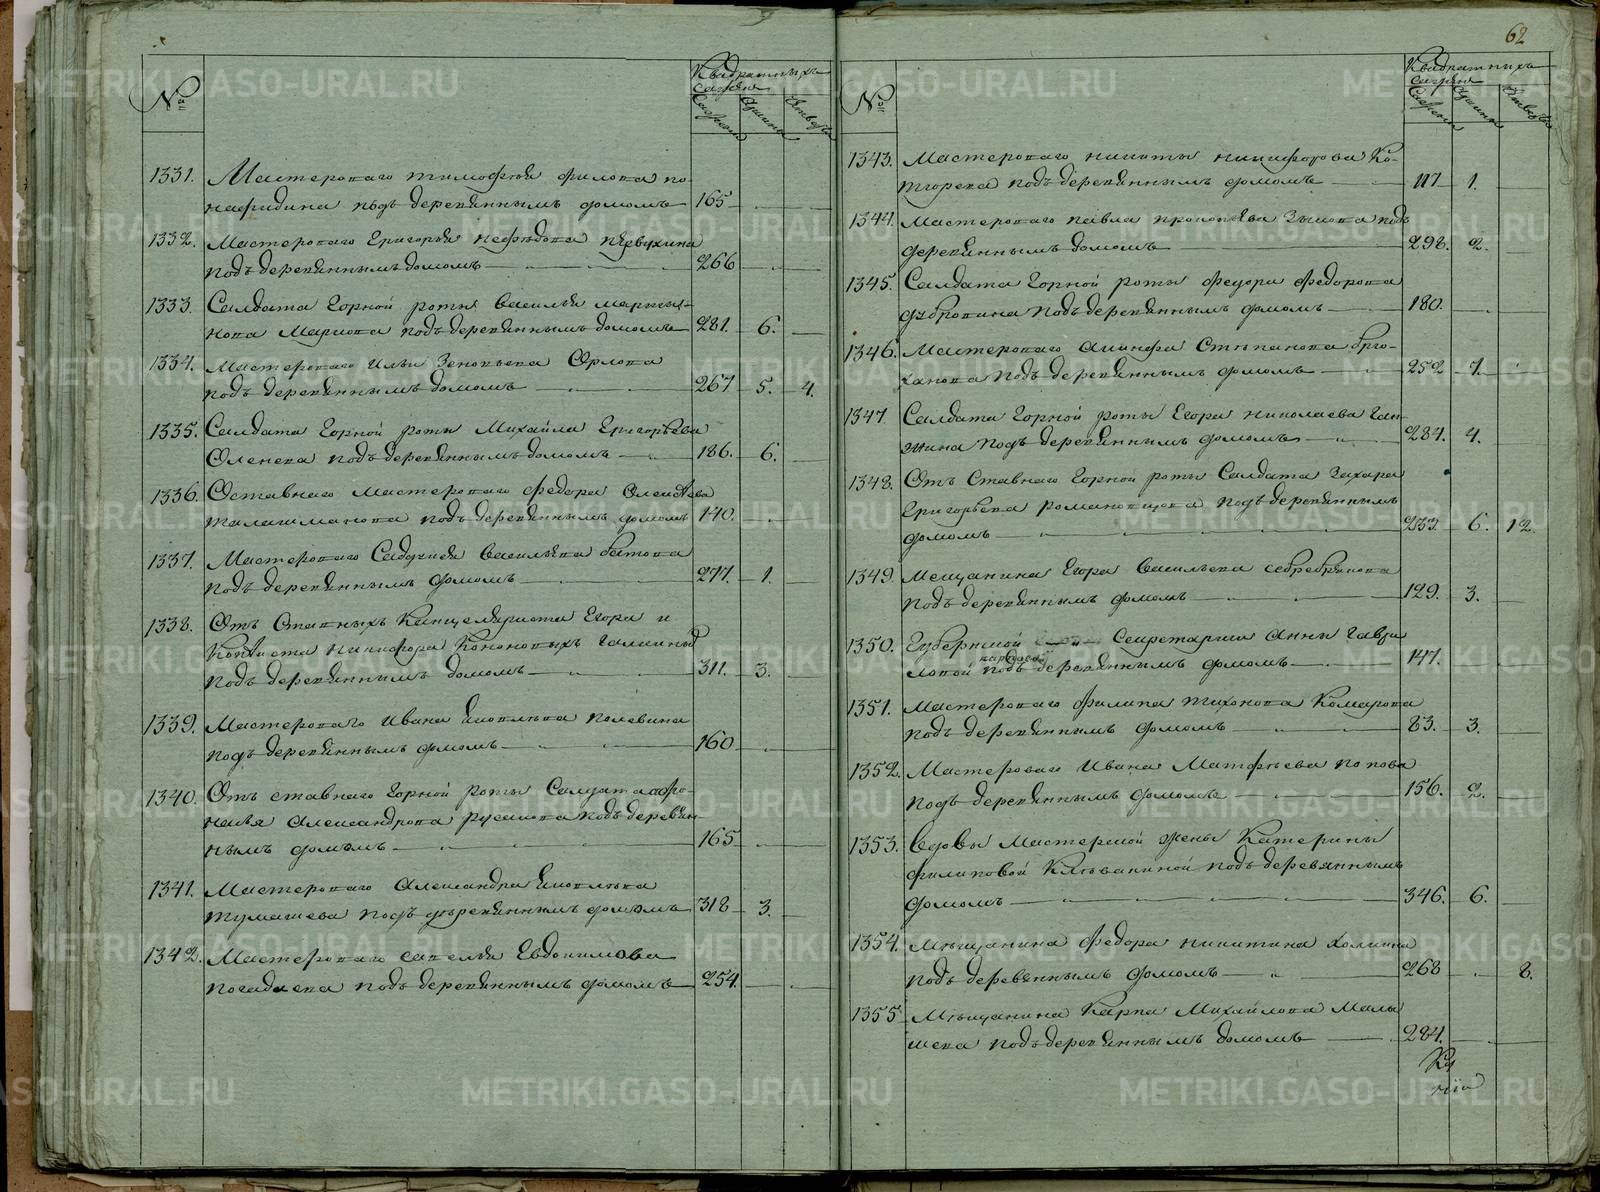 62
№
Квадратныхъ
сажень
Сажени
Аршины
Четверти
1331. Мастероваго Тимофея Филова по-
подъ деревяннымъ домомъ 165
1332. Мастероваго Григорья Нефедова Первухина
подъ деревяннымъ домомъ 266
1333. Салдата Горной роты Василья Марты-
нова Маркова подъ деревяннымъ домомъ 281. 6.
1334. Мастероваго Ильи Зеновьева Орлова
подъ деревяннымъ домомъ 267 5. 4.
1335. Салдата Горной роты Михайла Григорьева
Оленева подъ деревяннымъ домомъ 186. 6.
1336. Оставнаго мастероваго Федора Алексѣева
Талашманова подъ деревяннымъ домомъ 140.
1337. Мастероваго Савелья Васильева Батова
подъ деревяннымъ домомъ 277. 1.
1338. Отъ Ставныхъ Канцеляриста Егора и
Копѣиста Никифора Кононовыхъ Галкиныхъ
подъ деревяннымъ домомъ 311. 3.
1339. Мастероваго Ивана Яковлева Полевина
подъ деревяннымъ домомъ 160
1340. Отъ ставнаго Горной роты Салдата Афо-
насья Александрова Русинова подъ деревян-
нымъ домомъ 165
1341. Мастероваго Александра Яковлева
Тумашева подъ деревяннымъ домомъ 318 3.
1342. Мастероваго Савелья Евдокимова
Погадаева подъ деревяннымъ домомъ 254.
№
Квадратныхъ
сажень
Сажени
Аршины
Четверти
1343. Мастероваго Никиты Никифорова Ко-
подъ деревяннымъ домомъ 117 1.
1344. Мастероваго Павла Прокопьева Зыкова подъ
деревяннымъ домомъ 298. 2.
1345. Салдата Горной роты Федора Федорова
Дубровина подъ деревяннымъ домомъ 180.
1346. Мастероваго Акинфа Степанова Брю-
ханова подъ деревяннымъ домомъ 252 7.
1347 Салдата Горной роты Егора Николаева Ган-
жина подъ деревяннымъ домомъ 284. 4.
1348. Отъ Ставнаго Горной роты Салдата Захара
Григорьева Романовцова подъ деревяннымъ
домомъ 233. 6. 12.
1349. Мещанина Егора Васильева Себребрякова
подъ деревяннымъ домомъ 129. 3.
1350. Губернской Секретарши Анны Гаври
ловой подъ деревяннымъ домомъ 147.
1351. Мастероваго Филипа Тихонова Комарова
подъ деревяннымъ домомъ 83. 3.
1352. Мастероваго Ивана Матфеева Попова
подъ деревяннымъ домомъ 156. 2.
1353. Вдовы Мастерской жены Катерины
Филиповой Клевакиной подъ деревяннымъ
домомъ 346. 6.
1354. Мѣщанина Федора Никитина Холкина
подъ деревеннымъ домомъ 268 8.
1355 Мѣщанина Карпа Михайлова Малы
шева подъ деревяннымъ домомъ 284.
METRIKI.GASO-URAL.RU